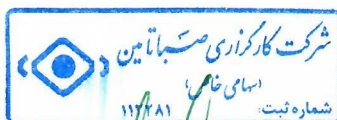 شرکت کارگزاری صبا تامین
(سهامی خاص)
شماره ثبت: